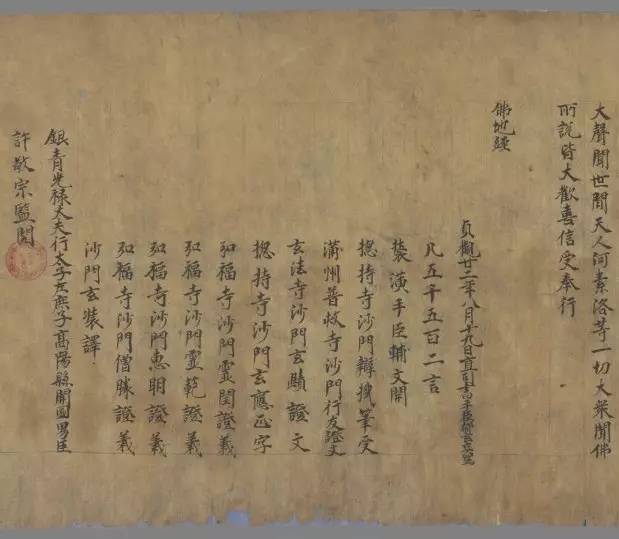 大聲聞世間天人阿素洛等一切大衆聞佛
所說皆大歡喜信受奉行
佛地經
貞觀廿二年八月十九日直司書手臣
凡五千五百二言
裝潢手臣輔文開
揔持寺沙門辯機筆受
蒲州普救寺沙門行友證文
玄法寺沙門玄賾證文
揔持寺沙門玄應正字
弘福寺沙門靈閏證義
弘福寺沙門靈範證義
弘福寺沙門惠明證義
弘福寺沙門僧勝證義
沙門玄奘譯
銀青光祿大夫行太子左庶子高陽縣開國男臣
許敬宗監閱